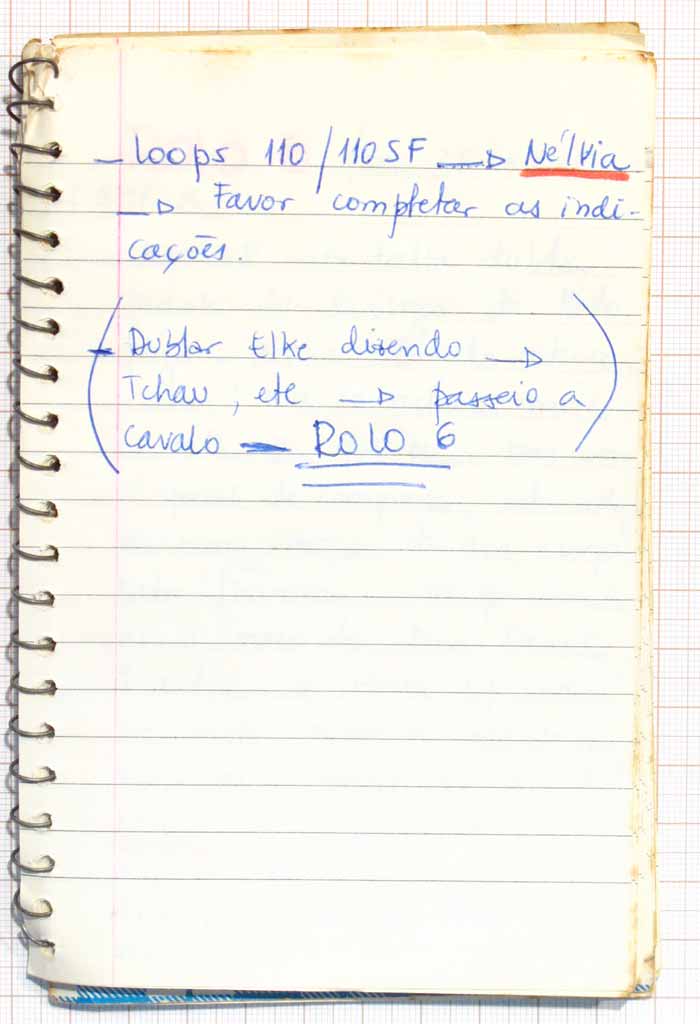 — Loops 110 / 110 SF —▷ Nélvia
—▷ Favor completar as indi-
cações.
( — Dublar Elke dizendo —▷
Tchau, etc —▷ passeio a
cavalo — ROLO 6 )